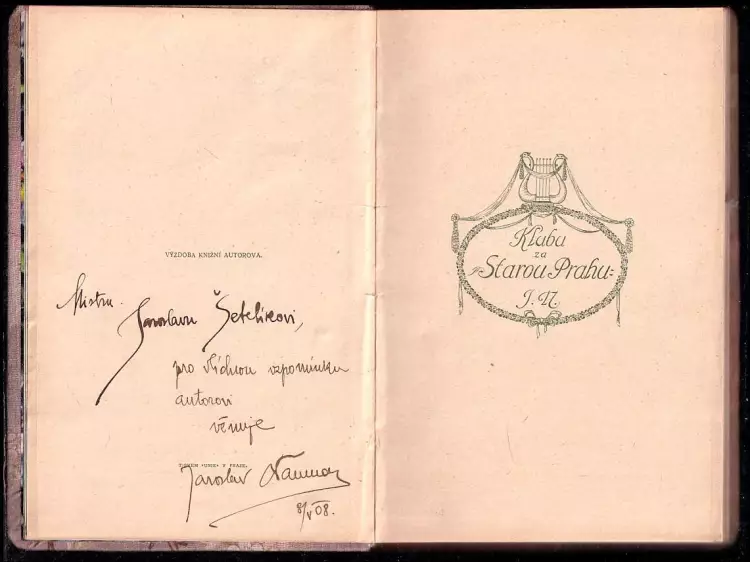 VÝZDOBA KNIŽNÍ AUTOROVA.
Mistru
Jaroslavu Šetelíkovi,
pro vlídnou vzpomínku
autorovi
věnuje
TISKEM «UNIE» V PRAZE.
Jaroslav
8/V 08.
Kletba
za
"Starou Prahu"
J. N.